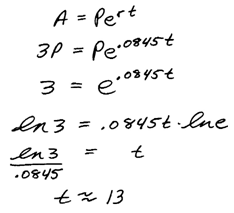 A = Pe^rt
3P = Pe^.0845t
3 = e^.0845t
ln 3 = .0845t · ln e
ln 3 / .0845 = t
t ≈ 13